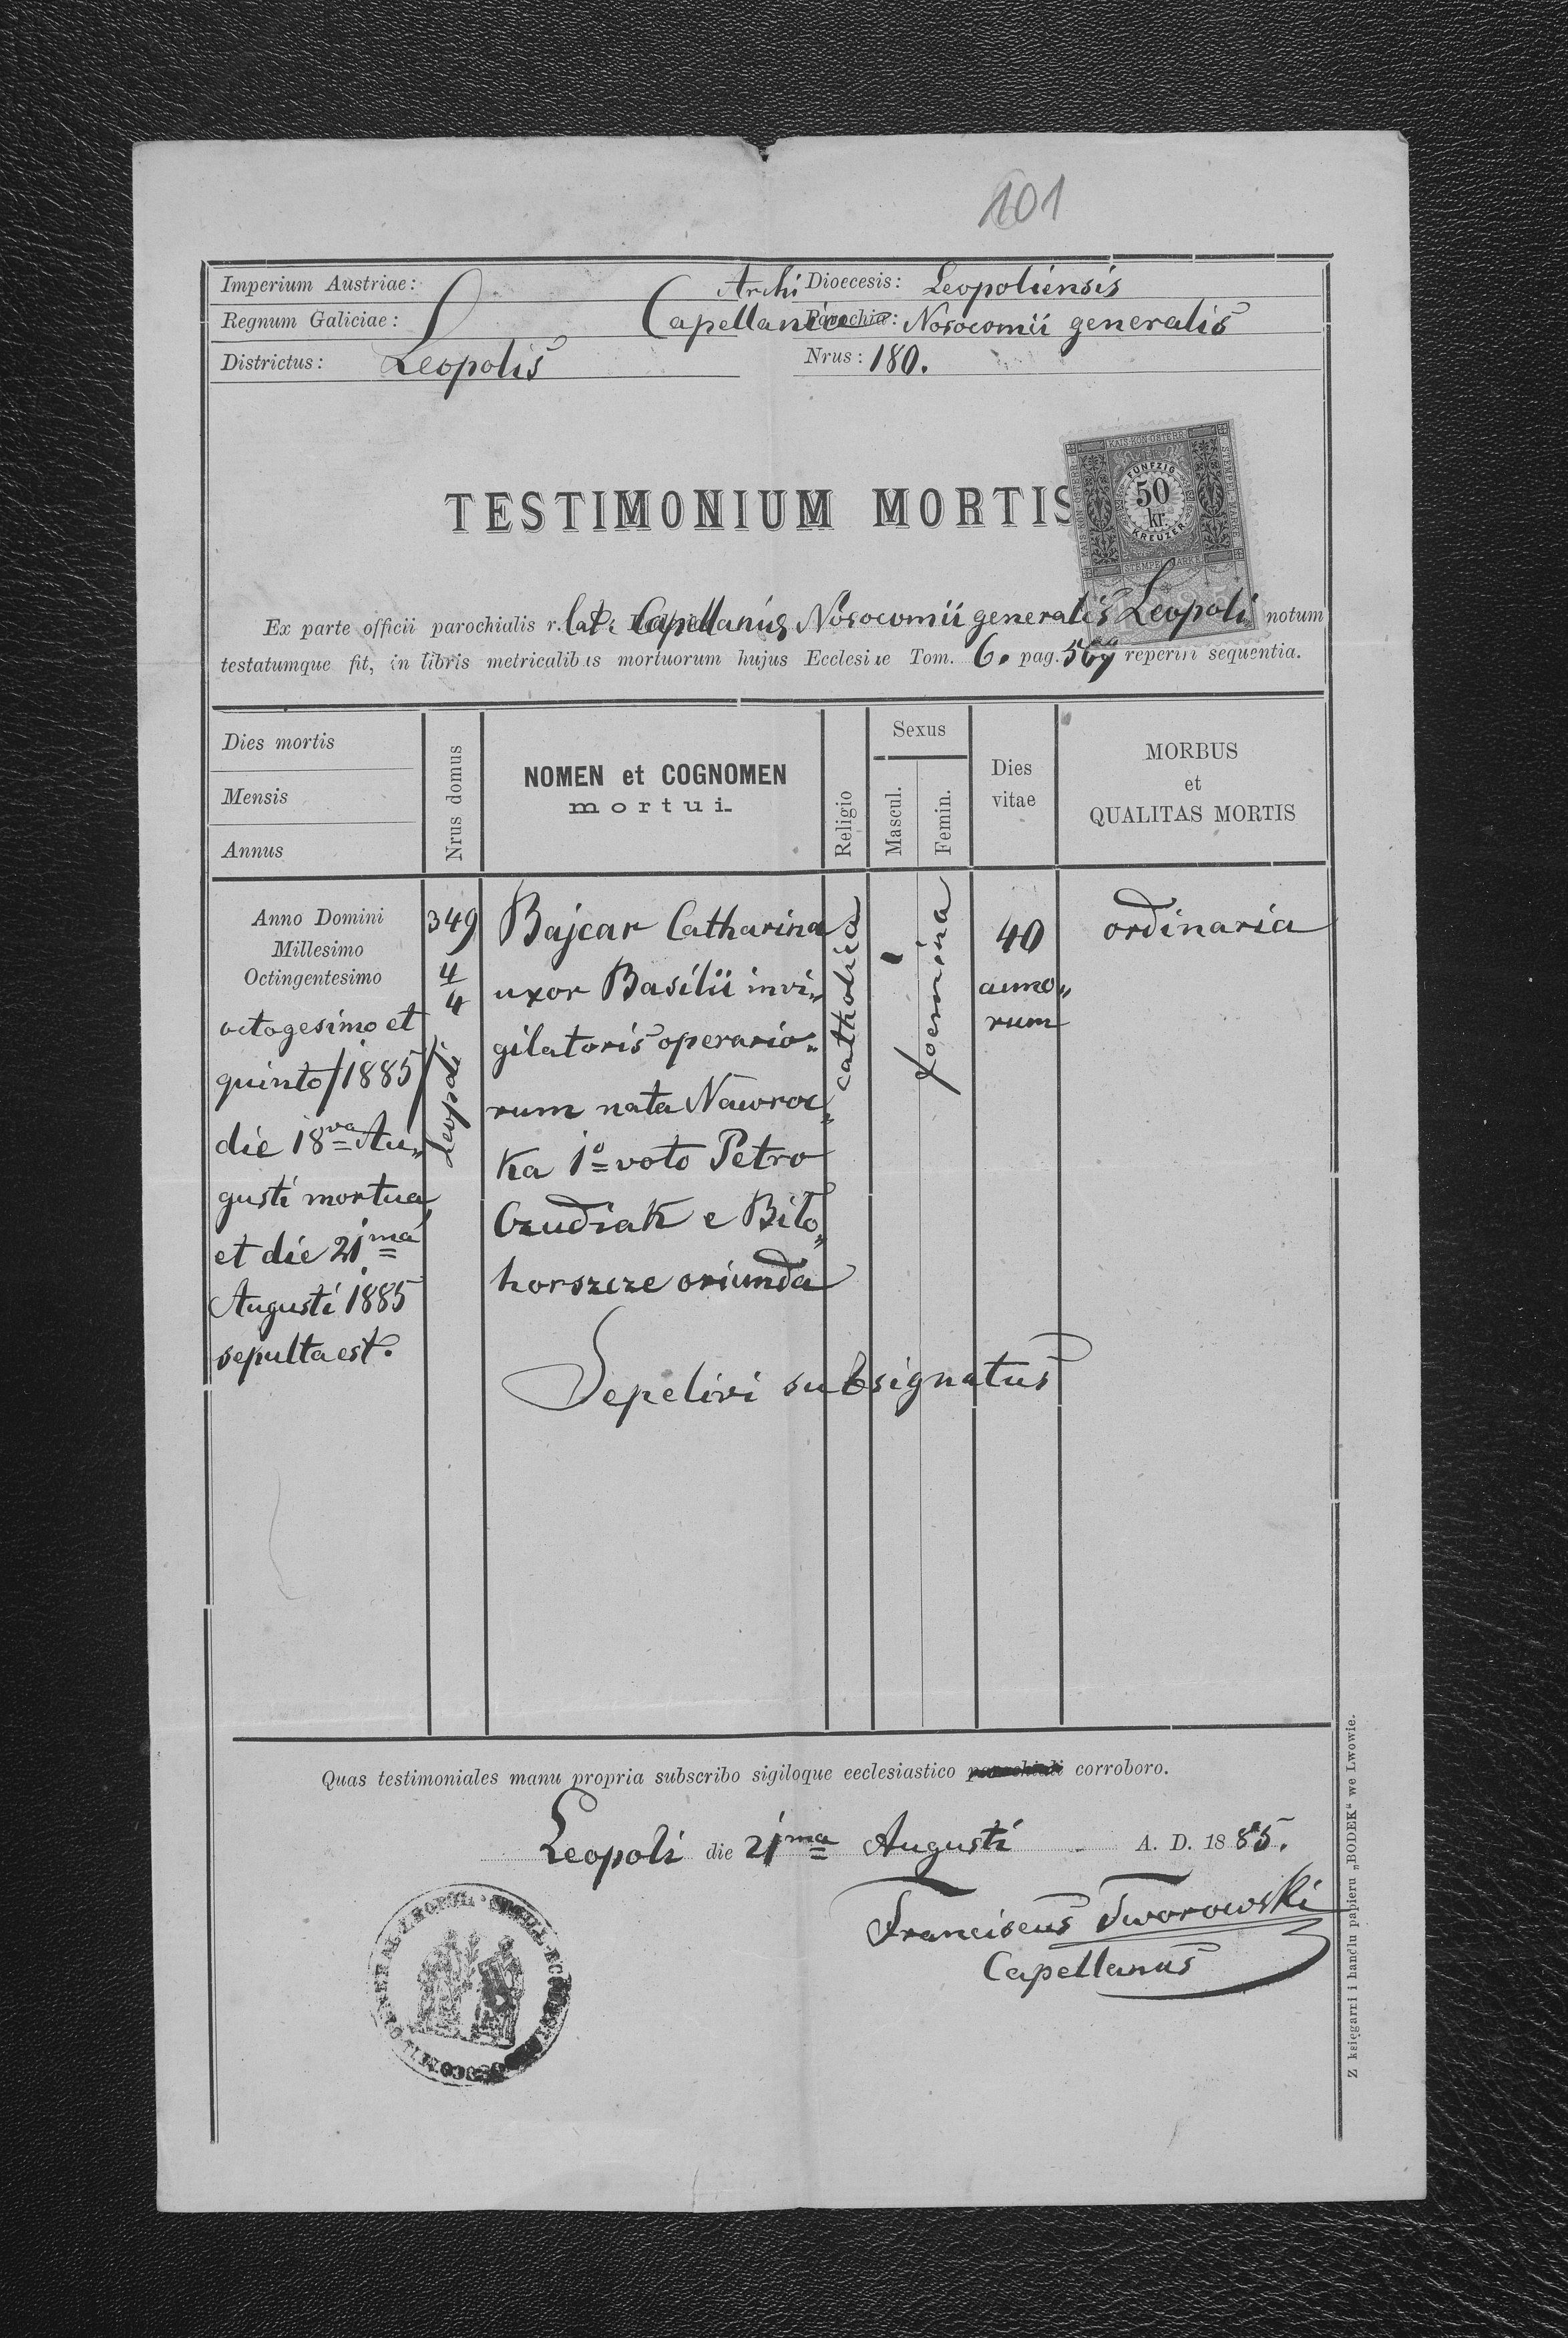 101
Imperium Austriae: Archi Dioecesis: Leopoliensis
Regnum Galiciae: Capellania Parochia: Nosocomii generalis
Districtus: Leopolis Nrus: 180.
KAIS. KÖN. ÖSTERR.
STEMPEL MARKE
FÜNFZIG
50
kr.
KREUZER
STEMPEL MARKE
TESTIMONIUM MORTIS
Ex parte officii parochialis r. lat. Capellanus Nosocomii generalis Leopoli notum
testatumque fit, in libris metricalibus mortuorum hujus Ecclesiae Tom. 6. pag. reperiri sequentia.
Dies mortis
Mensis
Annus
Nrus domus
NOMEN et COGNOMEN
mortui
Religio
Sexus
Mascul.
Femin.
Dies
vitae
MORBUS
et
QUALITAS MORTIS
Anno Domini
Millesimo
Octingentesimo
octogesimo et
quinto /1885/
die 18va Au„
gusti mortua
et die 21ma
Augusti 1885
sepulta est.
349
4
4
Leopoli
Bajcar Catharina
uxor Basilii invi„
gilatoris operario„
rum nata Nawroc„
ka 1o voto Petro
Czudiak e Biło„
horszcze oriunda
catholica
foemina
40
anno„
rum
ordinaria
Sepelivi subsignatus
Quas testimoniales manu propria subscribo sigiloque ecclesiastico parochiali corroboro.
Leopoli die 21ma Augusti A. D. 1885.
Franciscus Tworowski
Capellanus
Z księgarni i handlu papieru „BODEK“ we Lwowie.